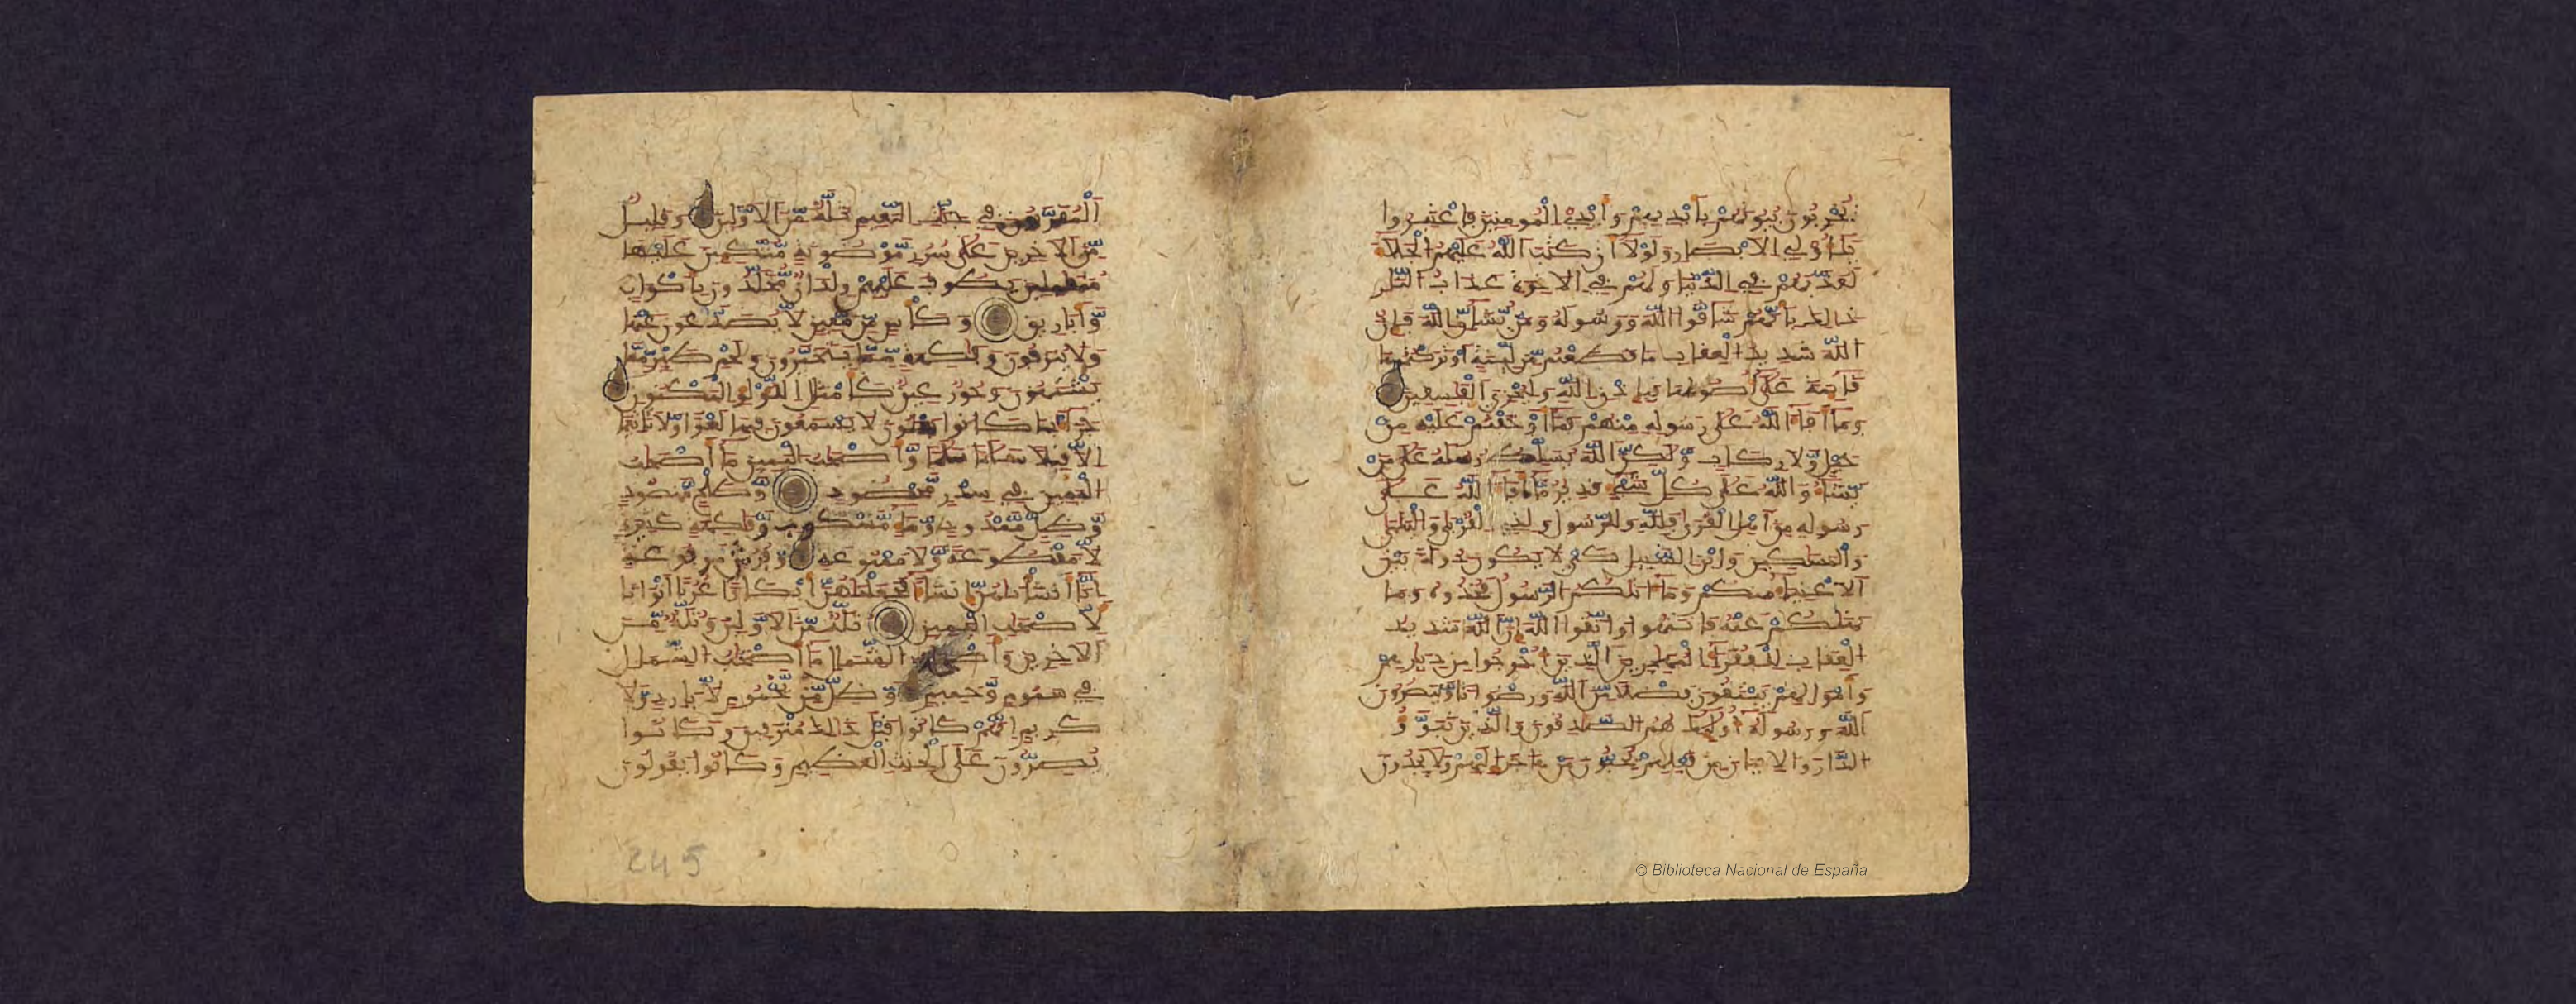 يُخْرِبُونَ بُيُوتَهُمْ بِأَيْدِيهِمْ وَأَيْدِي الْمُومِنِينَ فَاعْتَبِرُوا
يَٰأُوْلِي الَابْصَٰرِ وَلَوْلَا أَن كَتَبَ اللَّهُ عَلَيْهِمُ الْجَلَاءَ
لَعَذَّبَهُمْ فِي الدُّنْيَا وَلَهُمْ فِي الَاخِرَةِ عَذَابُ النَّارِ
ذَٰلِكَ بِأَنَّهُمْ شَاقُّوا اللَّهَ وَرَسُولَهُ وَمَنْ يُّشَاقِّ اللَّهَ فَإِنَّ
اللَّهَ شَدِيدُ الْعِقَابِ مَا قَطَعْتُم مِّن لِّينَةٍ أَوْ تَرَكْتُمُوهَا
قَائِمَةً عَلَىٰ أُصُولِهَا فَبِإِذْنِ اللَّهِ وَلِيُخْزِيَ الْفَٰسِقِينَ
وَمَا أَفَاءَ اللَّهُ عَلَىٰ رَسُولِهِ مِنْهُمْ فَمَا أَوْجَفْتُمْ عَلَيْهِ مِنْ
خَيْلٍ وَّلَا رِكَابٍ وَّلَٰكِنَّ اللَّهَ يُسَلِّطُ رُسُلَهُ عَلَىٰ مَنْ
يَّشَاءُ وَاللَّهُ عَلَىٰ كُلِّ شَيْءٍ قَدِيرٌ مَّا أَفَاءَ اللَّهُ عَلَىٰ
رَسُولِهِ مِنَ اهْلِ الْقُرَىٰ فَلِلَّهِ وَلِلرَّسُولِ وَلِذِي الْقُرْبَىٰ وَالْيَتَٰمَىٰ
وَالْمَسَٰكِينِ وَابْنِ السَّبِيلِ كَيْ لَا يَكُونَ دُولَةً بَيْنَ
الَاغْنِيَاءِ مِنكُمْ وَمَا ءَاتَٰكُمُ الرَّسُولُ فَخُذُوهُ وَمَا
نَهَٰكُمْ عَنْهُ فَانتَهُوا وَاتَّقُوا اللَّهَ إِنَّ اللَّهَ شَدِيدُ
الْعِقَابِ لِلْفُقَرَاءِ الْمُهَٰجِرِينَ الَّذِينَ أُخْرِجُوا مِن دِيَٰرِهِمْ
وَأَمْوَٰلِهِمْ يَبْتَغُونَ فَضْلًا مِّنَ اللَّهِ وَرِضْوَٰنًا وَّيَنصُرُونَ
اللَّهَ وَرَسُولَهُ أُوْلَٰئِكَ هُمُ الصَّٰدِقُونَ وَالَّذِينَ تَبَوَّءُو
الدَّارَ وَالِايمَٰنَ مِن قَبْلِهِمْ يُحِبُّونَ مَنْ هَاجَرَ إِلَيْهِمْ وَلَا يَجِدُونَ
الْمُقَرَّبُونَ فِي جَنَّٰتِ النَّعِيمِ ثُلَّةٌ مِّنَ الَاوَّلِينَ وَقَلِيلٌ
مِّنَ الَاخِرِينَ عَلَىٰ سُرُرٍ مَّوْضُونَةٍ مُّتَّكِئِينَ عَلَيْهَا
مُتَقَٰبِلِينَ يَطُوفُ عَلَيْهِمْ وِلْدَٰنٌ مُّخَلَّدُونَ بِأَكْوَابٍ
وَّأَبَارِيقَ وَكَأْسٍ مِّن مَّعِينٍ لَّا يُصَدَّعُونَ عَنْهَا
وَلَا يُنزَفُونَ وَفَٰكِهَةٍ مِّمَّا يَتَخَيَّرُونَ وَلَحْمِ طَيْرٍ مِّمَّا
يَشْتَهُونَ وَحُورٌ عِينٌ كَأَمْثَٰلِ اللُّؤْلُؤِ الْمَكْنُونِ
جَزَاءً بِمَا كَانُوا يَعْمَلُونَ لَا يَسْمَعُونَ فِيهَا لَغْوًا وَّلَا تَأْثِيمًا
إِلَّا قِيلًا سَلَٰمًا سَلَٰمًا وَّأَصْحَٰبُ الْيَمِينِ مَا أَصْحَٰبُ
الْيَمِينِ فِي سِدْرٍ مَّخْضُودٍ وَّطَلْحٍ مَّنضُودٍ
وَّظِلٍّ مَّمْدُودٍ وَّمَاءٍ مَّسْكُوبٍ وَّفَٰكِهَةٍ كَثِيرَةٍ
لَّا مَقْطُوعَةٍ وَّلَا مَمْنُوعَةٍ وَّفُرُشٍ مَّرْفُوعَةٍ
إِنَّا أَنشَأْنَٰهُنَّ إِنشَاءً فَجَعَلْنَٰهُنَّ أَبْكَارًا عُرُبًا أَتْرَابًا
لِّأَصْحَٰبِ الْيَمِينِ ثُلَّةٌ مِّنَ الَاوَّلِينَ وَثُلَّةٌ مِّنَ
الَاخِرِينَ وَأَصْحَٰبُ الشِّمَالِ مَا أَصْحَٰبُ الشِّمَالِ
فِي سَمُومٍ وَّحَمِيمٍ وَّظِلٍّ مِّنْ يَّحْمُومٍ لَّا بَارِدٍ وَّلَا
كَرِيمٍ إِنَّهُمْ كَانُوا قَبْلَ ذَٰلِكَ مُتْرَفِينَ وَكَانُوا
يُصِرُّونَ عَلَى الْحِنثِ الْعَظِيمِ وَكَانُوا يَقُولُونَ
245
© Biblioteca Nacional de España